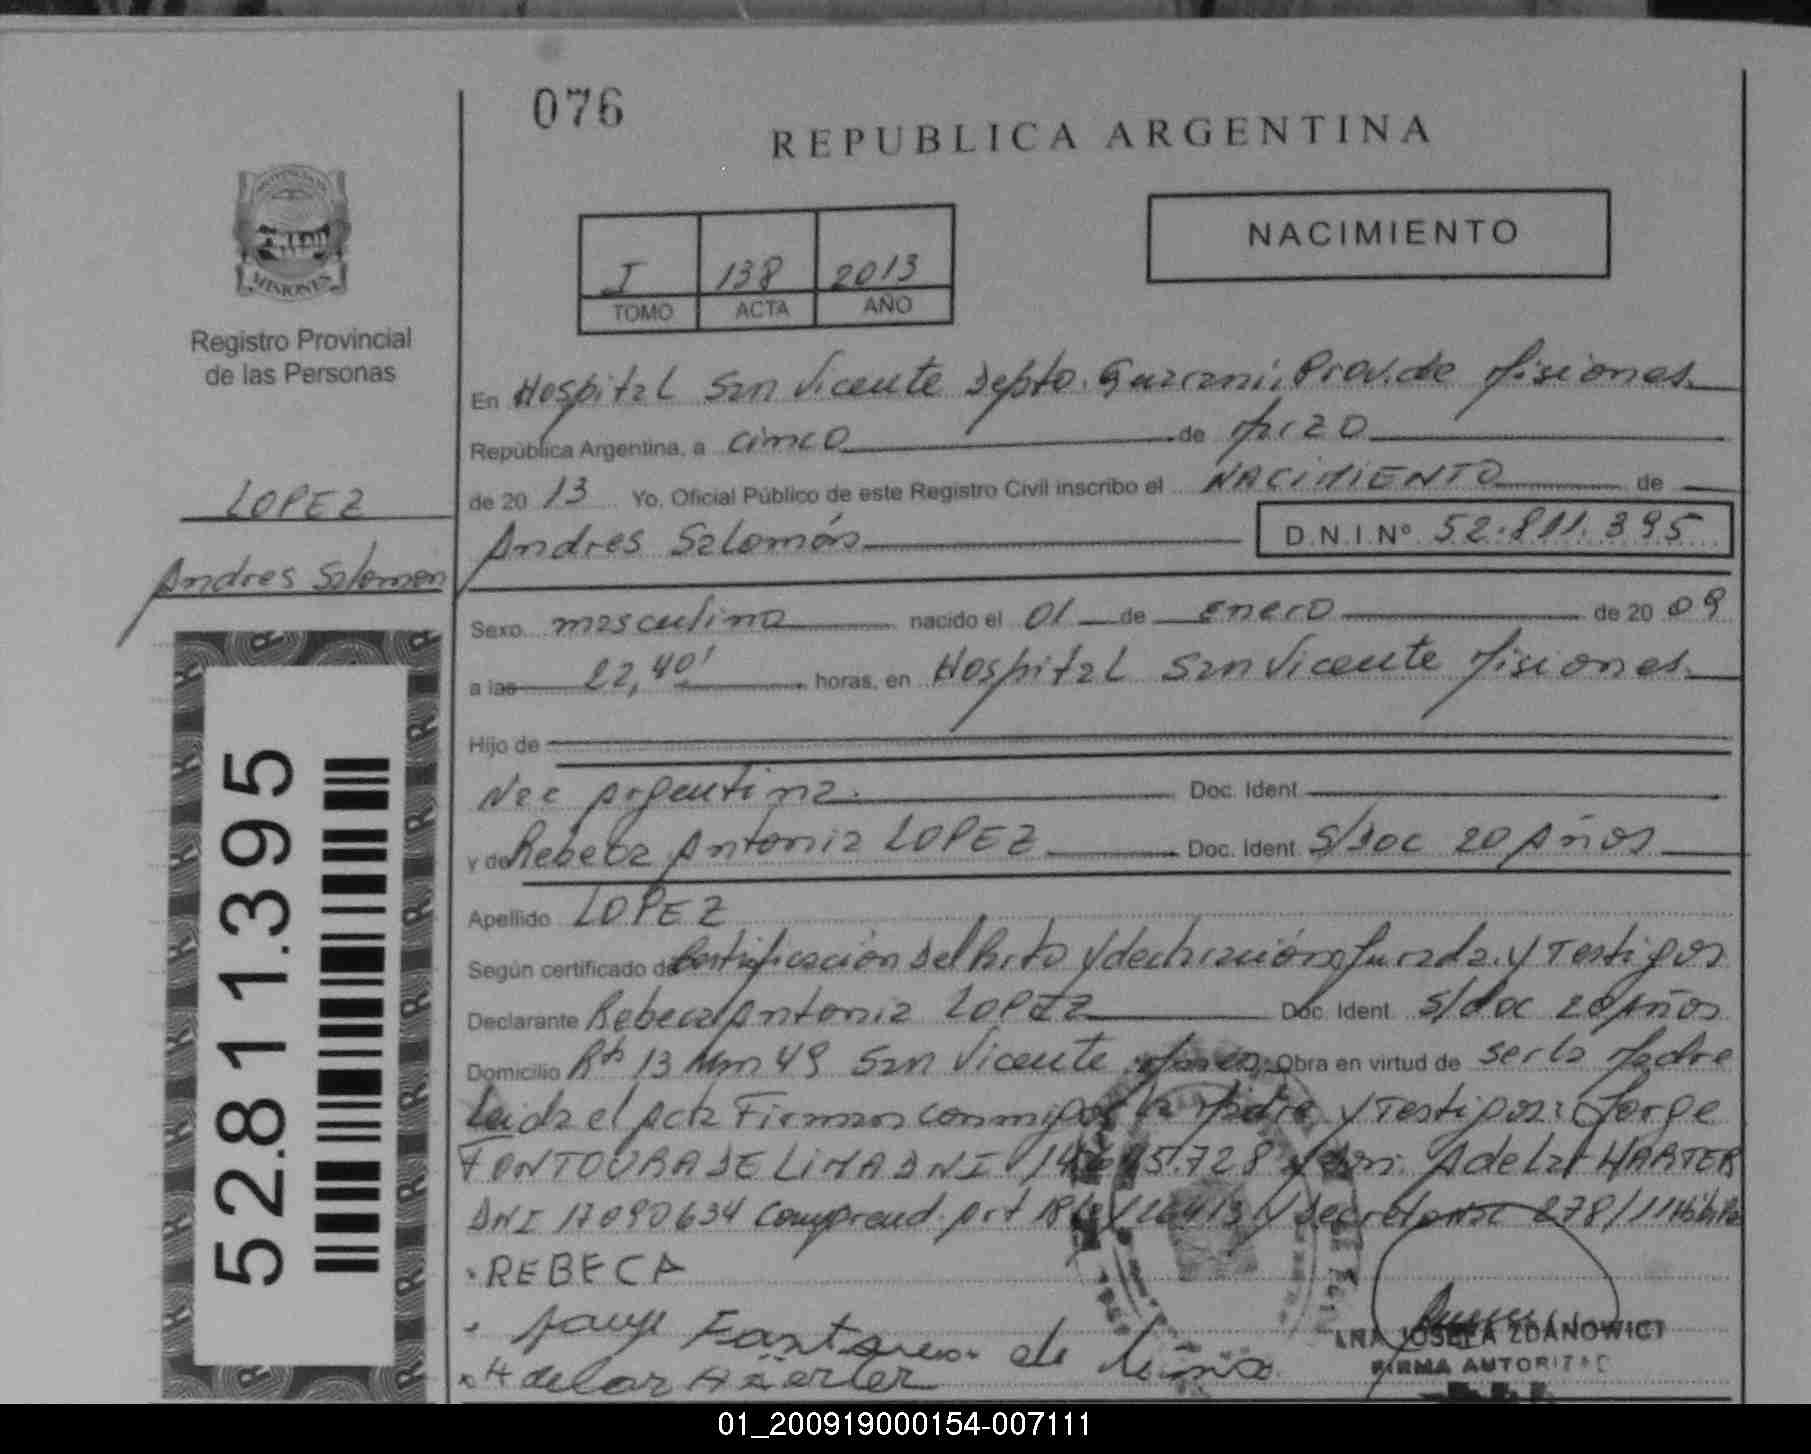 076
REPUBLICA ARGENTINA
NACIMIENTO
I 138 2013
TOMO ACTA AÑO
MISIONES
Registro Provincial
de las Personas
LOPEZ
Andres Salomón
52.811.395
En Hospital San Vicente Depto. Guaraní, Prov. de Misiones
República Argentina, a cinco de Marzo
de 20 13 Yo, Oficial Público de este Registro Civil inscribo el NACIMIENTO de
Andres Salomón D.N.I.Nº 52.811.395
Sexo masculino nacido el 01 de enero de 20 09
a las 22,40' horas, en Hospital San Vicente Misiones
Hijo de
Nac Argentina. Doc. Ident
y de Rebeca Antonia LOPEZ Doc. Ident S/Doc 20 Años
Apellido LOPEZ
Según certificado de Certificación del Parto y declaración Jurada. y Testigos
Declarante Rebeca Antonia LOPEZ Doc. Ident S/doc 20 Años
Domicilio Rta 13 Km 49 San Vicente Obra en virtud de ser la Madre
Leida el Acta Firman conmigo la Madre y Testigos: Jorge
FONTOURA DE LIMA DNI Adelar HARTER
DNI 17090634 278/11
REBECA
Jorge Fontoura de Lima
Adelar Harter
JOSEFA ZDANOWICZ
FIRMA AUTORIZAD
01_200919000154-007111